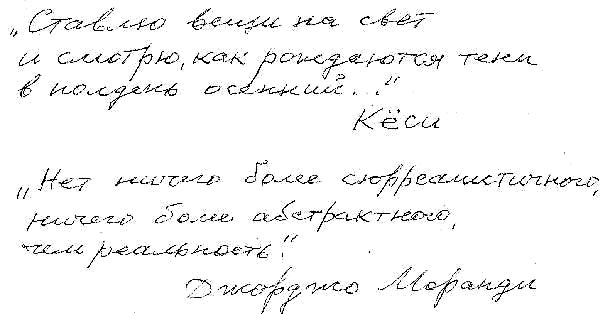 „Ставлю вещи на свет
и смотрю, как рождаются тени
в полдень осенний..."
Кёси
„Нет ничего более сюрреалистичного,
ничего более абстрактного,
чем реальность."
Джорджо Моранди